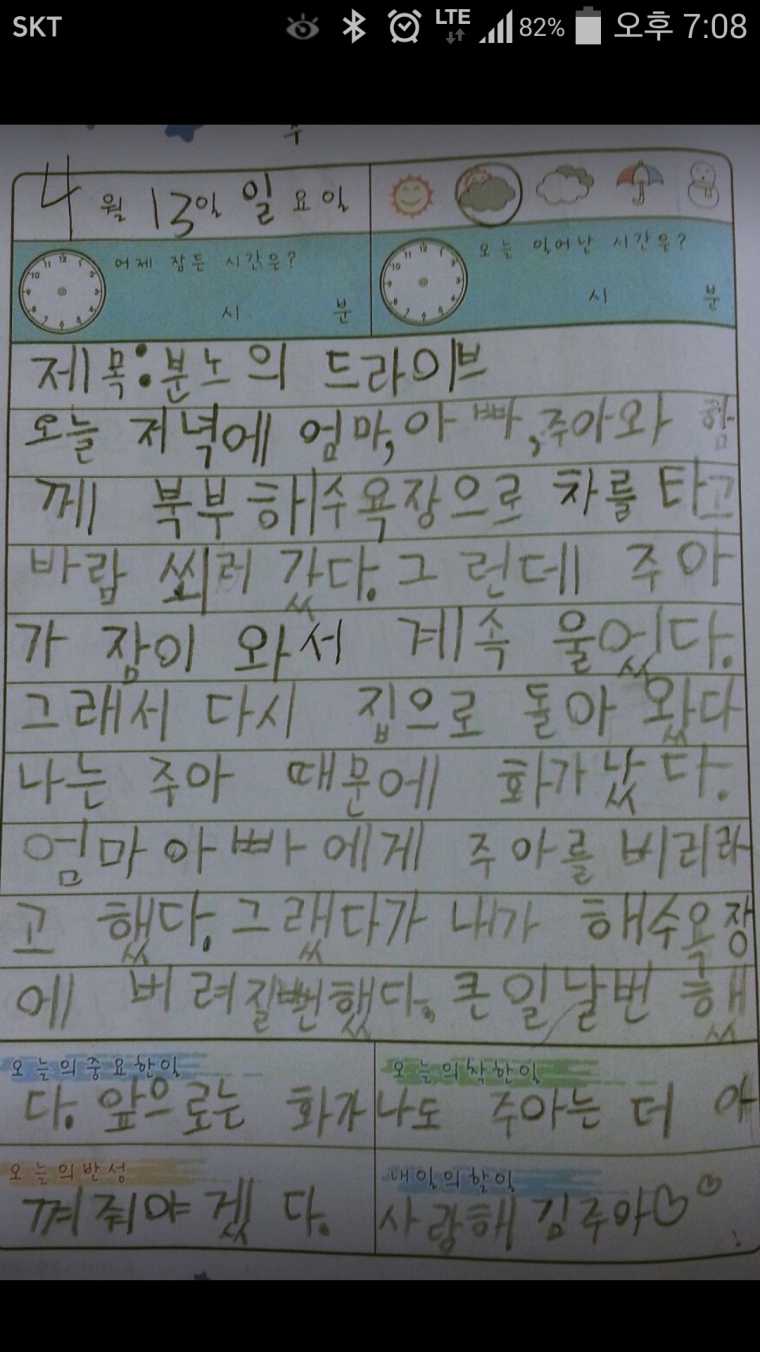 SKT LTE 82% 오후 7:08
4월 13일 일요일
어제 잠든 시간은?
시 분
오늘 일어난 시간은?
시 분
제목:분노의 드라이브
오늘 저녁에 엄마,아빠,주아와 함
께 북부해수욕장으로 차를 타고
바람 쐬러 갔다. 그런데 주아
가 잠이 와서 계속 울었다.
그래서 다시 집으로 돌아 왔다
나는 주아 때문에 화가났다.
엄마아빠에게 주아를 버리라
고 했다. 그랬다가 내가 해수욕장
에 버려질뻔했다. 큰일날번 했
오늘의중요한일
오늘의착한일
다. 앞으로는 화가나도 주아는 더 아
오늘의반성
내일의할일
껴줘야겠다. 사랑해 김주아♡♡